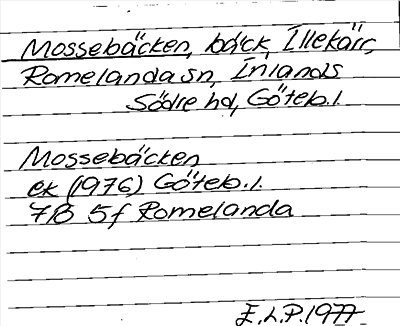 Mossebäcken, bäck, Illekärr,
Romelanda sn, Inlands
Södre hd, Göteb. l.
Mossebäcken
ek (1976) Göteb. l.
7B 5f Romelanda
E.L.P. 1977